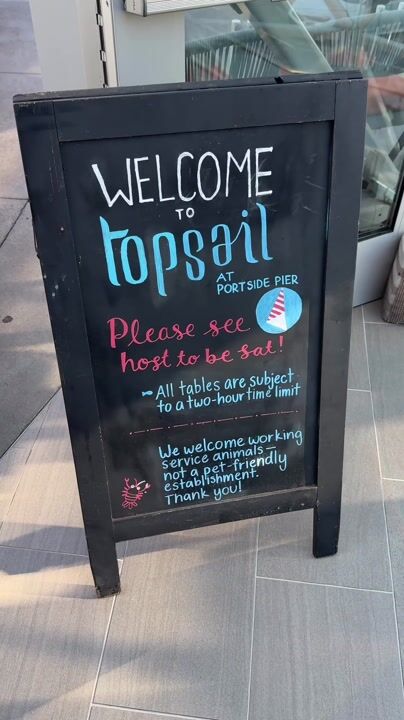 WELCOME
TO
topsail
AT
PORTSIDE PIER
Please see
host to be sat!
All tables are subject
to a two-hour time limit
We welcome working
service animals –
not a pet-friendly
establishment.
Thank you!